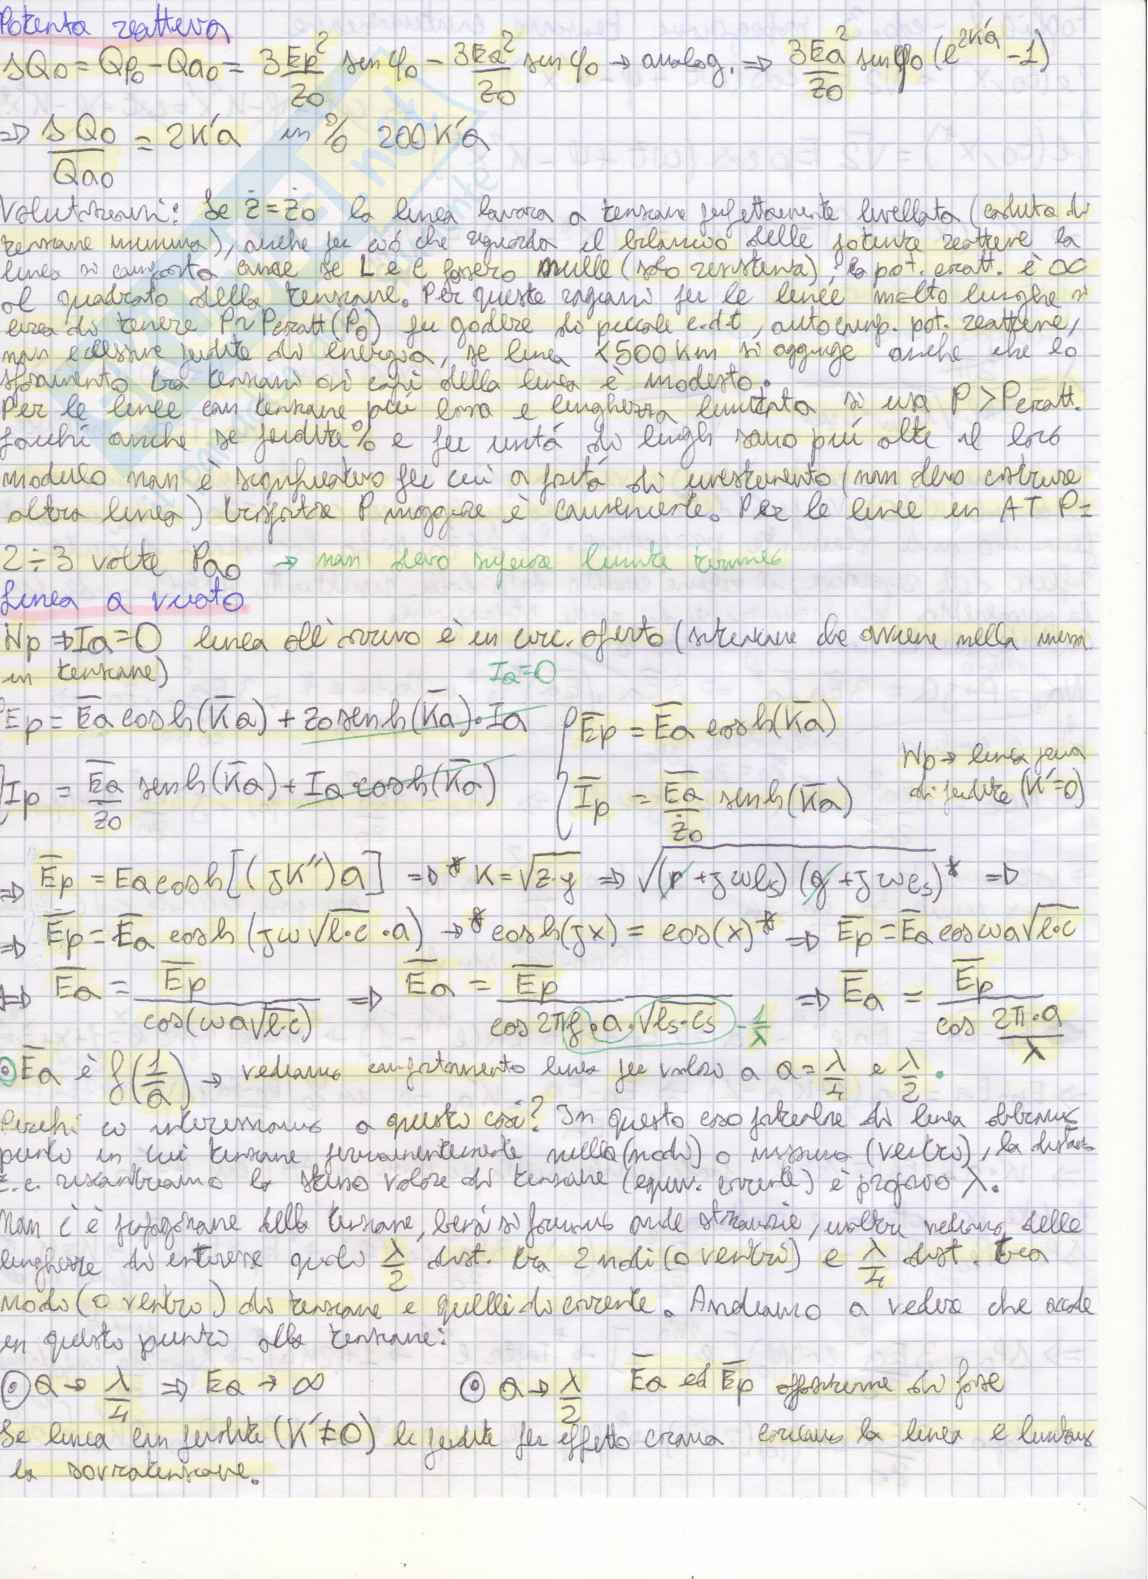 Potenza reattiva
ΔQ₀ = Qp₀ − Qa₀ = 3 Ep²/Z₀ sen φ₀ − 3Ea²/Z₀ sen φ₀ → analog. ⇒ 3Ea²/Z₀ sen φ₀ (e^{2K'a} − 1)
⇒ ΔQ₀/Qa₀ = 2K'a in % 200 K'a
Valutazioni: Se ż = ż₀ la linea lavora a tensione perfettamente livellata (caduta di
tensione minima), anche per ciò che riguarda il bilancio delle potenze reattive la
linea si comporta come se L e C fossero nulle (solo resistenza), la pot. caratt. è ∝
al quadrato della tensione. Per queste ragioni per le linee molto lunghe si
cerca di tenere P≃Pcaratt (P₀) per godere di piccole c.d.t, autocomp. pot. reattive,
non eccessive perdite di energia, se linea <500 Km si aggiunge anche che lo
sfasamento tra tensioni ai capi della linea è modesto.
Per le linee con tensione più bassa e lunghezza limitata si usa P > Pcaratt.
perché anche se perdite % e per unità di lungh sono più alte il loro
modulo non è significativo per cui a parità di investimento (non devo costruire
altra linea) trasportare P maggiore è conveniente. Per le linee in AT P=
2÷3 volte Pa₀ → non devo superare limite termico
Linea a vuoto
Hp ⇒ Ia = 0 linea all'arrivo è in circ. aperto (situazione che avviene nella messa
in tensione)
Ia=0
Ep = Ea cosh(Ka) + z₀ senh(Ka)·Ia { Ep = Ea cosh(Ka)
Ip = Ea/ż₀ senh(Ka) + Ia cosh(Ka) { Ip = Ea/ż₀ senh(Ka)
Hp → linea senza
di perdite (K'=0)
⇒ Ep = Ea cosh[(jK'')a] ⇒ * K = √z·y ⇒ √(r + jωls)(g + jωcs) * ⇒
⇒ Ep = Ea cosh (jω√l·c·a) → * cosh(jx) = cos(x) * ⇒ Ep = Ea cos ωa√l·c
⇒ Ea = Ep/cos(ωa√l·c) ⇒ Ea = Ep/cos 2πf·a·√ls·cs = 1/λ ⇒ Ea = Ep/cos 2π·a/λ
Ea è f(1/a) → vediamo comportamento linea per valori a a = λ/4 e λ/2.
Perché ci interessiamo a questo così? In questo caso potendo di linea abbiamo
punto in cui tensione permanentemente nulla (nodi) o massima (ventri), la distanza
riscontriamo lo stesso valore di tensione (equiv. corrente) è proprio λ.
Non c'è propagazione della tensione, bensì si formano onde stazionarie, inoltre vediamo delle
lunghezze di interesse quali λ/2 dist. tra 2 nodi (o ventri) e λ/4 dist. tra
nodo (o ventro) di tensione e quelli di corrente. Andiamo a vedere che accade
in questo punto alla tensione:
a → λ/4 ⇒ Ea → ∞ a → λ/2 Ea ed Ep opposizione di fase
Se linea con perdite (K' ≠ 0) le perdite per effetto corona caricano la linea e limitano
la sovratensione.